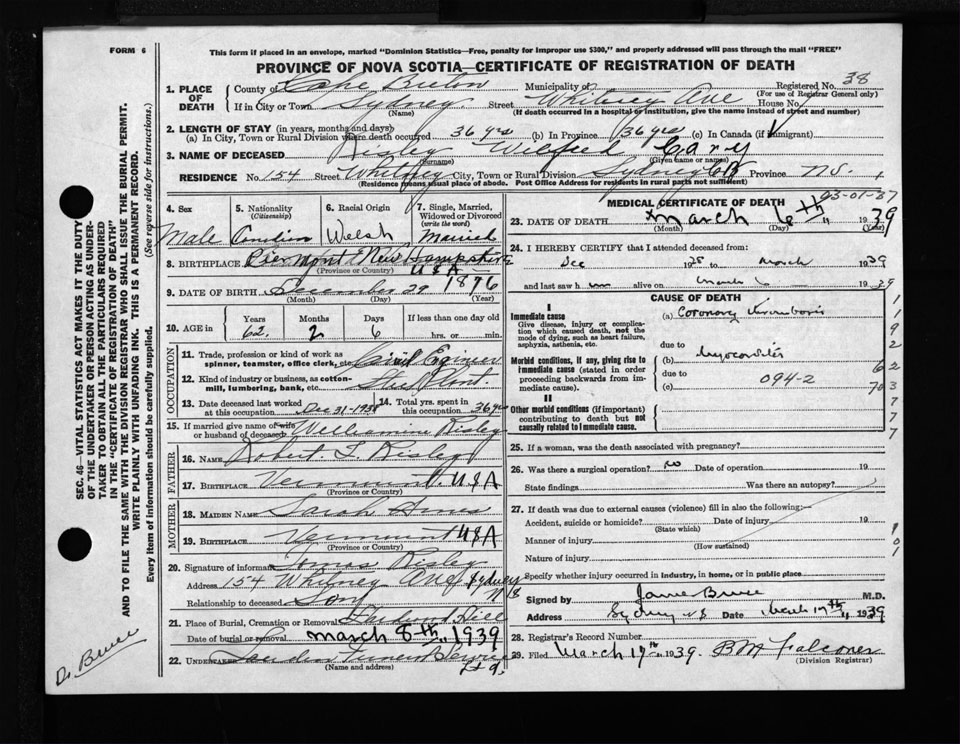 FORM 6
This form if placed in an envelope, marked "Dominion Statistics—Free, penalty for improper use $300," and properly addressed will pass through the mail "FREE"
PROVINCE OF NOVA SCOTIA—CERTIFICATE OF REGISTRATION OF DEATH
Registered No. 38
(For use of Registrar General only)
1. PLACE OF DEATH
County of Cape Breton Municipality of
If in City or Town Sydney Street Whitney Ave House No.
(Name) (If death occurred in a hospital or institution, give the name instead of street and number)
2. LENGTH OF STAY (in years, months and days)
(a) In City, Town or Rural Division where death occurred 36 yrs (b) In Province 36 yrs (c) In Canada (if immigrant)
3. NAME OF DECEASED Risley Wilfred Cary
(Surname) (Given name or names)
RESIDENCE No. 154 Street Whitney City, Town or Rural Division Sydney CB Province N.S.
(Residence means usual place of abode. Post Office Address for residents in rural parts not sufficient)
4. Sex Male
5. Nationality (Citizenship)
6. Racial Origin Welsh
7. Single, Married, Widowed or Divorced (write the word) Married
8. BIRTHPLACE Piermont New Hampshire
(Province or Country) USA
9. DATE OF BIRTH December 29 1876
(Month) (Day) (Year)
10. AGE in Years Months Days If less than one day old
62 2 6 hrs. or min.
OCCUPATION
11. Trade, profession or kind of work as spinner, teamster, office clerk, etc. Civil Enginer
12. Kind of industry or business, as cotton-mill, lumbering, bank, etc. Steel Plant.
13. Date deceased last worked at this occupation Dec 31-1938
14. Total yrs. spent in this occupation 36 yrs
15. If married give name of wife or husband of deceased Welleminie Risley
FATHER
16. NAME Robert T. Risley
17. BIRTHPLACE Vermount. USA
(Province or Country)
MOTHER
18. MAIDEN NAME Sarah Ames
19. BIRTHPLACE Vermount USA
(Province or Country)
20. Signature of informant Risley
Address 154 Whitney Ave Sydney NS
Relationship to deceased Son
21. Place of Burial, Cremation or Removal Hill
Date of burial or removal March 8th, 1939
22. UNDERTAKER Ltd.
(Name and address)
MEDICAL CERTIFICATE OF DEATH
03-01-37
23. DATE OF DEATH March 6th, 1939
(Month) (Day)
24. I HEREBY CERTIFY that I attended deceased from:
Dec 1938 to March 1939
and last saw h im alive on March 6 1939
CAUSE OF DEATH
I
Immediate cause
Give disease, injury or complication which caused death, not the mode of dying, such as heart failure, asphyxia, asthenia, etc.
(a) Coronary thrombosis
due to
Morbid conditions, if any, giving rise to immediate cause (stated in order proceeding backwards from immediate cause).
(b) Myocarditis
due to
(c) 094-2
II
Other morbid conditions (if important) contributing to death but not causally related to immediate cause.
25. If a woman, was the death associated with pregnancy?
26. Was there a surgical operation? no Date of operation 19
State findings Was there an autopsy?
27. If death was due to external causes (violence) fill in also the following:—
Accident, suicide or homicide? Date of injury 19
(State which)
Manner of injury
(How sustained)
Nature of injury
Specify whether injury occurred in industry, in home, or in public place
Signed by Jamie Bruce M.D.
Address Sydney NS Date March 17th, 1939
28. Registrar's Record Number
29. Filed March 17th, 1939. BM Falconer
(Division Registrar)
SEC. 46—VITAL STATISTICS ACT MAKES IT THE DUTY OF THE UNDERTAKER OR PERSON ACTING AS UNDERTAKER TO OBTAIN ALL THE PARTICULARS REQUIRED IN THE "CERTIFICATE OF REGISTRATION OF DEATH" AND TO FILE THE SAME WITH THE DIVISION REGISTRAR WHO SHALL ISSUE THE BURIAL PERMIT.
WRITE PLAINLY WITH UNFADING INK. THIS IS A PERMANENT RECORD.
Every item of information should be carefully supplied. (See reverse side for instructions.)
Dr. Bruce